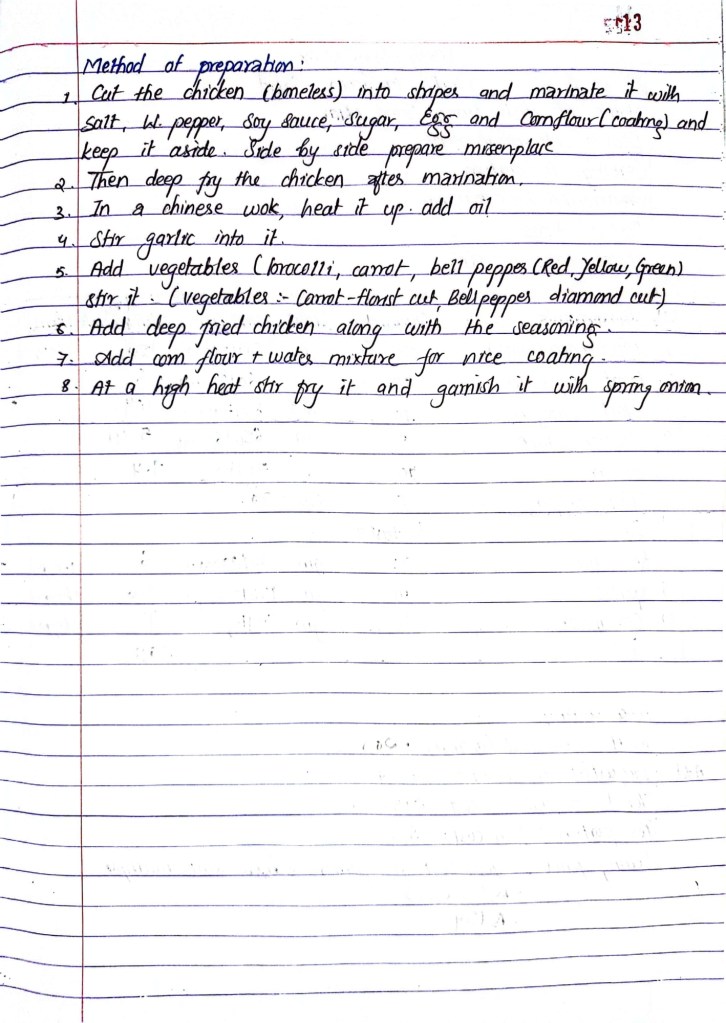 13
Method of preparation:
1. Cut the chicken (boneless) into shapes and marinate it with
salt, W. pepper, Soy sauce, Sugar, Egg and Cornflour (coating) and
keep it aside. Side by side prepare misenplace
2. Then deep fry the chicken after marination.
3. In a chinese wok, heat it up. add oil
4. Stir garlic into it.
5. Add vegetables (brocolli, carrot, bell pepper (Red, Yellow, Green)
stir it. (vegetables :- Carrot - florist cut, Bell pepper diamond cut)
6. Add deep fried chicken along with the seasoning.
7. Add corn flour + water mixture for nice coating.
8. At a high heat stir fry it and garnish it with spring onion.